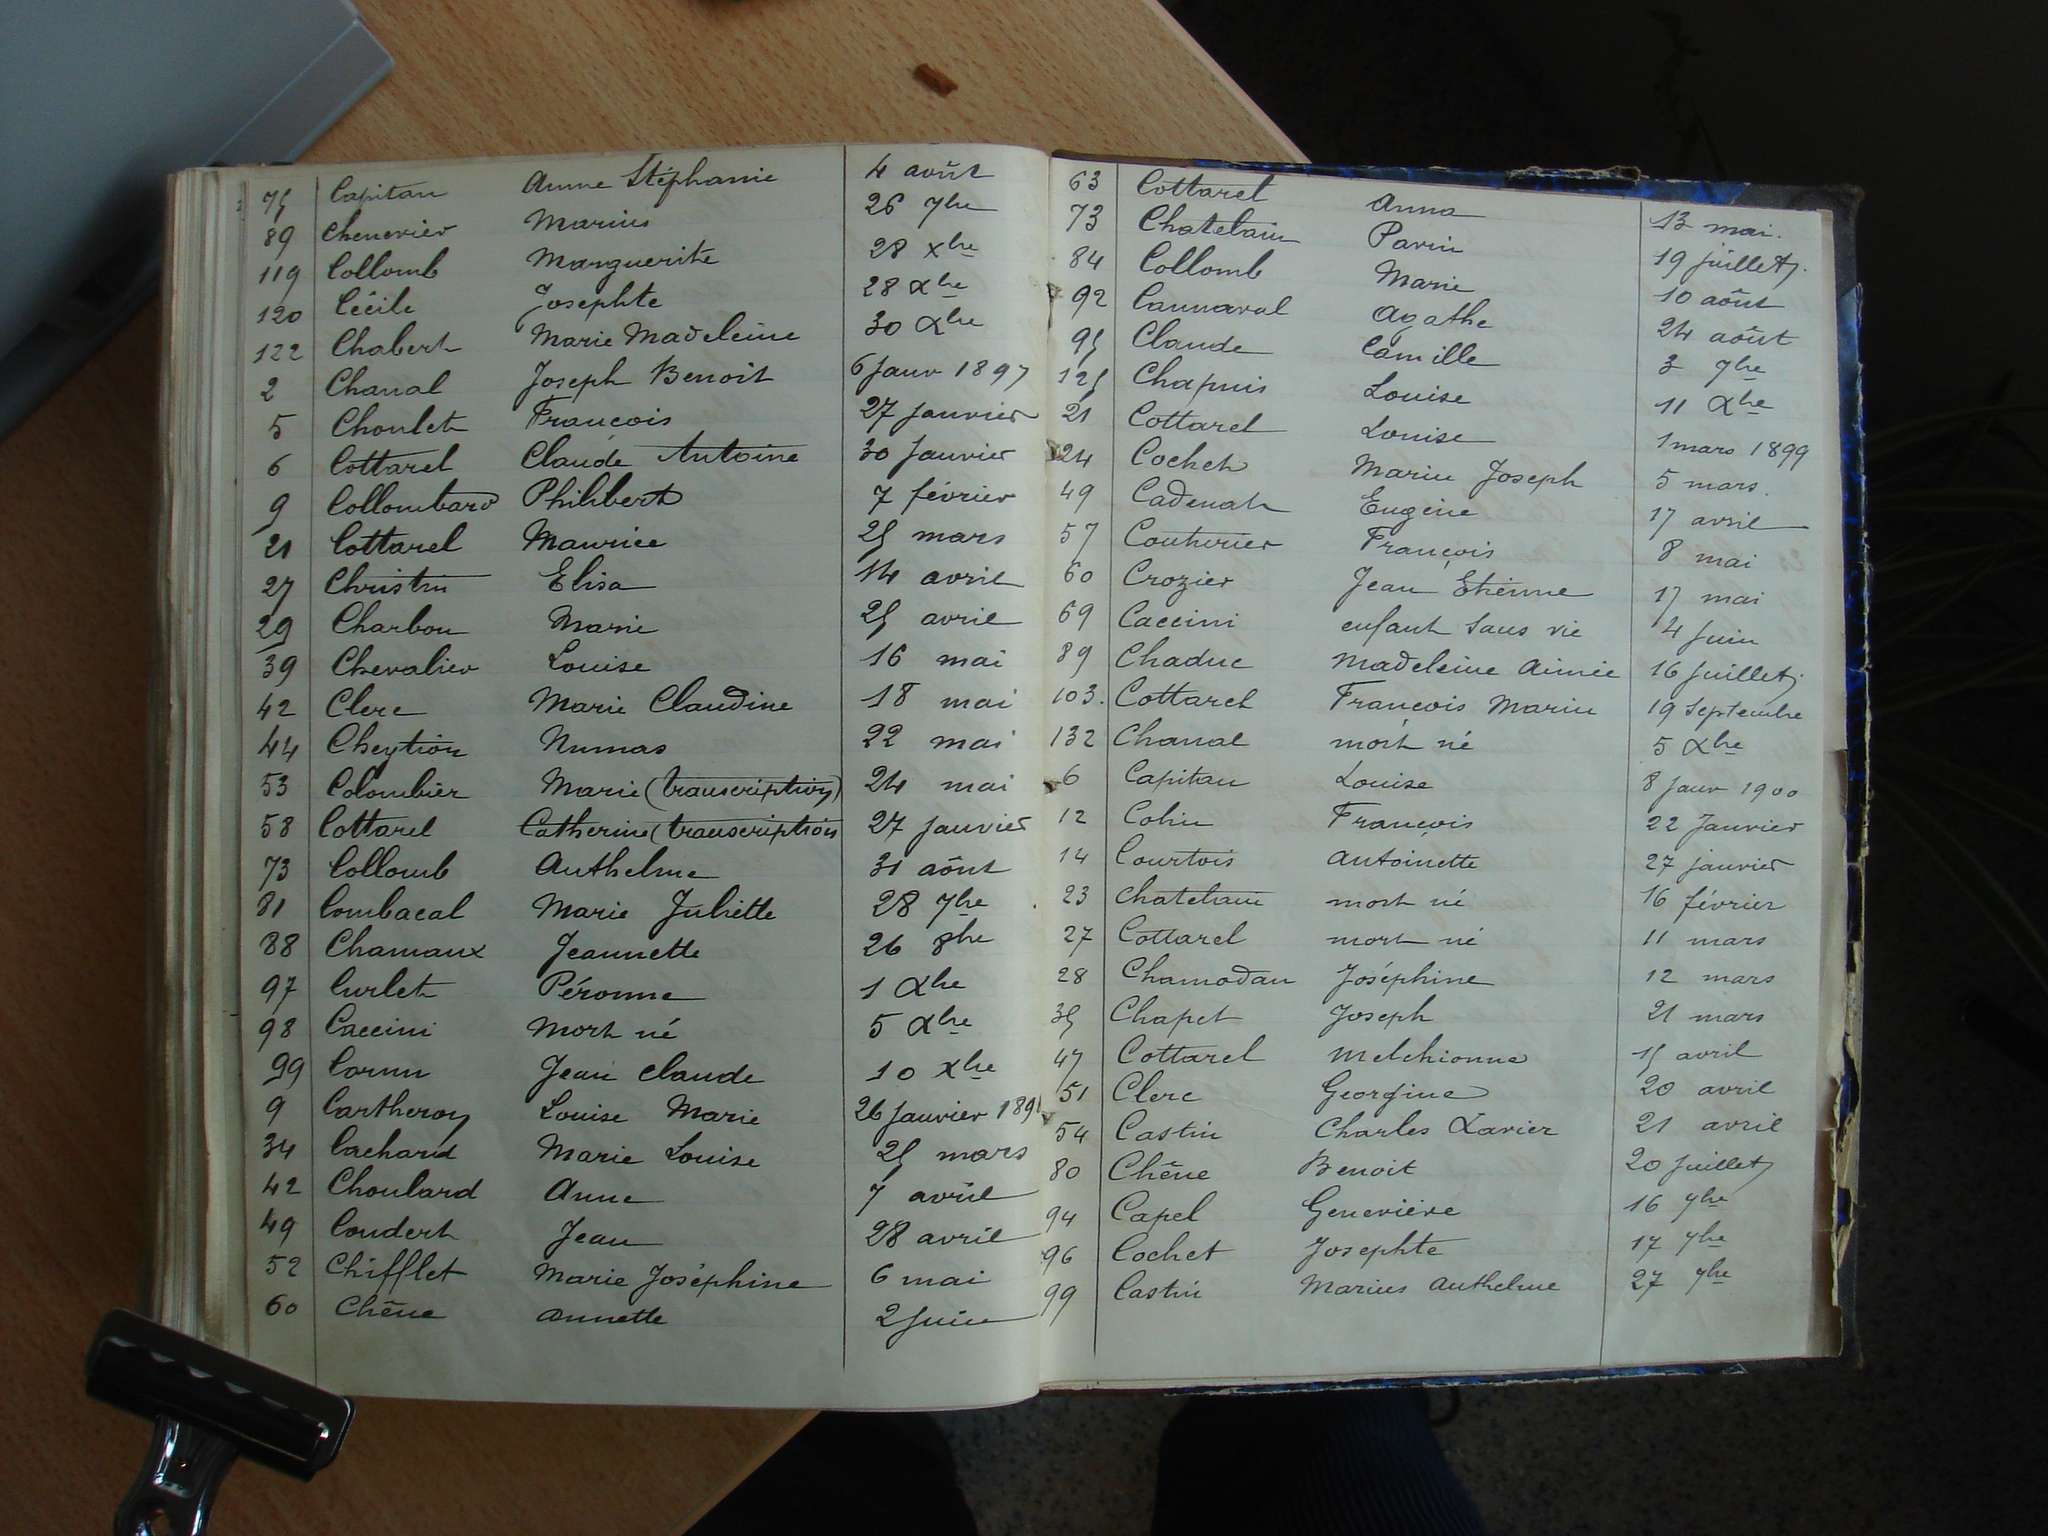 75 Capitan Anne Stéphanie 4 août
89 Chenevier Marius 26 7bre
119 Collomb Marguerite 28 xbre
120 Cécile Josephte 28 xbre
122 Chabert Marie Madeleine 30 xbre
2 Chanal Joseph Benoit 6 Janv 1897
5 Choulet François 27 Janvier
6 Cottarel Claude Antoine 30 Janvier
9 Collombard Philibert 7 février
21 Cottarel Maurice 25 mars
27 Christin Elisa 14 avril
29 Charbon Marie 25 avril
39 Chevalier Louise 16 mai
42 Clerc Marie Claudine 18 mai
44 Cheytion Numas 22 mai
53 Colombier Marie (transcription) 24 mai
58 Cottarel Catherine (transcription 27 janvier
73 Collomb Anthelme 31 août
81 Combacal Marie Juliette 28 7bre
88 Chamaux Jeannette 26 8bre
97 Curlet Péronne 1 xbre
98 Caccini Mort né 5 xbre
99 Cornu Jean Claude 10 xbre
9 Cartheron Louise Marie 26 Janvier
34 Cachard Marie Louise 25 mars
42 Choulard Anne 7 avril
49 Coudert Jean 28 avril
52 Chifflet Marie Joséphine 6 mai
60 Chêne Annette 2 Juin
63 Cottarel Anna 13 mai.
73 Chatelain Pavin 19 juillet
84 Collomb Marie 10 août
92 Cannaval Agathe 24 août
95 Claude Camille 3 7bre
125 Chapuis Louise 11 xbre
21 Cottarel Louise 1 mars 1899
24 Cochet Marin Joseph 5 mars.
49 Cadenat Eugène 17 avril
57 Couturier François 8 mai
60 Crozier Jean Etienne 17 mai
69 Caccini enfant sans vie 4 Juin
89 Chaduc Madeleine Aimée 16 Juillet
103. Cottarel François Marin 19 Septembre
132 Chanal mort né 5 xbre
6 Capitan Louise 8 Janv 1900
12 Colin François 22 Janvier
14 Courtois Antoinette 27 janvier
23 Chatelain mort né 16 février
27 Cottarel mort né 11 mars
28 Chamodan Joséphine 12 mars
35 Chapet Joseph 21 mars
47 Cottarel Melchionne 15 avril
51 Clerc Georgine 20 avril
54 Castin Charles Xavier 21 avril
80 Chêne Benoit 20 Juillet
94 Capel Geneviève 16 7bre
96 Cochet Josephte 17 7bre
99 Castin Marius Anthelme 27 7bre